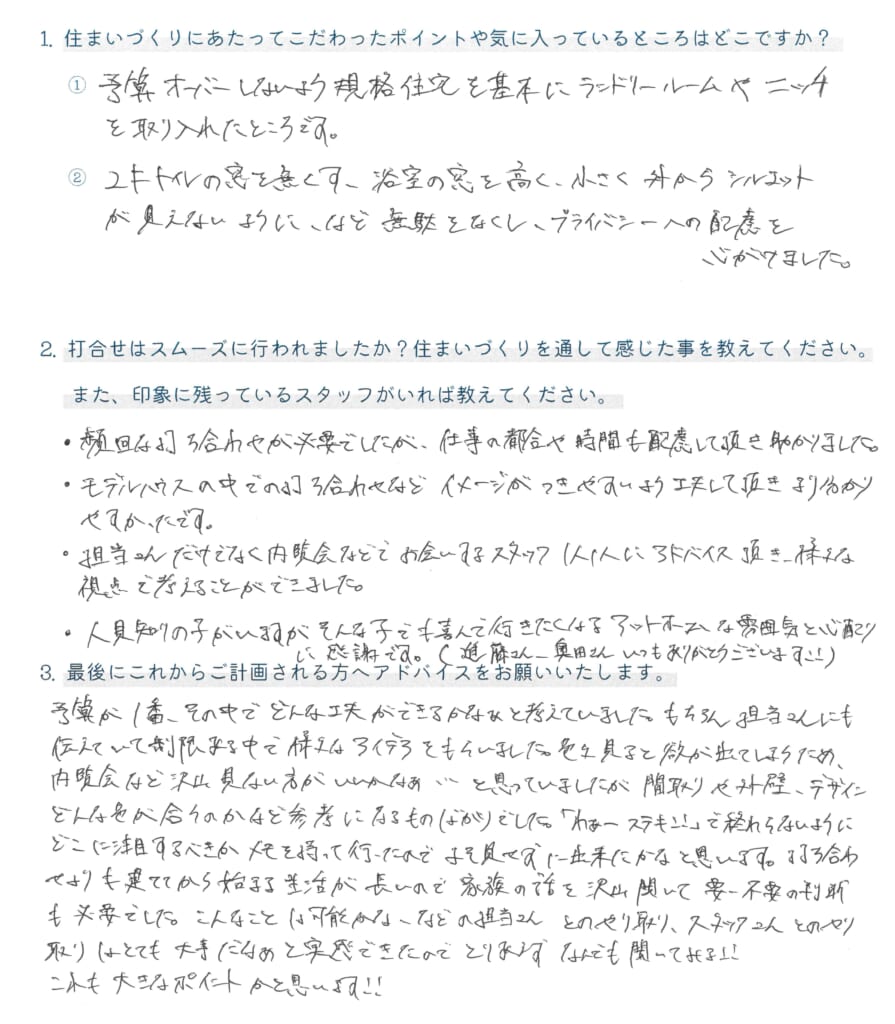 1. 住まいづくりにあたってこだわったポイントや気に入っているところはどこですか？
① 予算オーバーしないよう規格住宅を基本にランドリールームやニッチ
を取り入れたところです。
② 2Fトイレの窓を無くす、浴室の窓を高く、小さく外からシルエット
が見えないように、など無駄をなくし、プライバシーへの配慮を
心がけました。
2. 打合せはスムーズに行われましたか？住まいづくりを通して感じた事を教えてください。
また、印象に残っているスタッフがいれば教えてください。
・頻回な打ち合わせが必要でしたが、仕事の都合や時間も配慮して頂き助かりました。
・モデルハウスの中での打ち合わせなどイメージがつきやすいよう工夫して頂きより分かり
やすかったです。
・担当さんだけでなく内覧会などでお会いするスタッフ1人1人にアドバイス頂き、様々な
視点で考えることができました。
・人見知りの子がいますがそんな子でも喜んで行きたくなるアットホームな雰囲気と心配り
に感謝です。（進藤さん、奥田さんいつもありがとうございます!!）
3. 最後にこれからご計画される方へアドバイスをお願いいたします。
予算が1番、その中でどんな工夫ができるかなぁと考えていました。もちろん担当さんにも
伝えていて制限ある中で様々なアイデアをもらいました。色々見ると欲が出てしまうため、
内覧会など沢山見ない方がいいかなぁ…と思っていましたが間取りや外壁、デザイン
どんな色が合うのかなど参考になるものばかりでした。「わぁ〜ステキ!!」で終わらないように
どこに注目するべきかメモを持って行ったのでよそ見せずに出来たかなと思います。打ち合わ
せよりも建ててから始まる生活が長いので家族の話を沢山聞いて要・不要の判断
も必要でした。こんなことは可能かな、などの担当さんとのやり取り、スタッフさんとのやり
取りはとても大事だなぁと実感できたのでとりあえずなんでも聞いてみる!!
これも大きなポイントかと思います!!